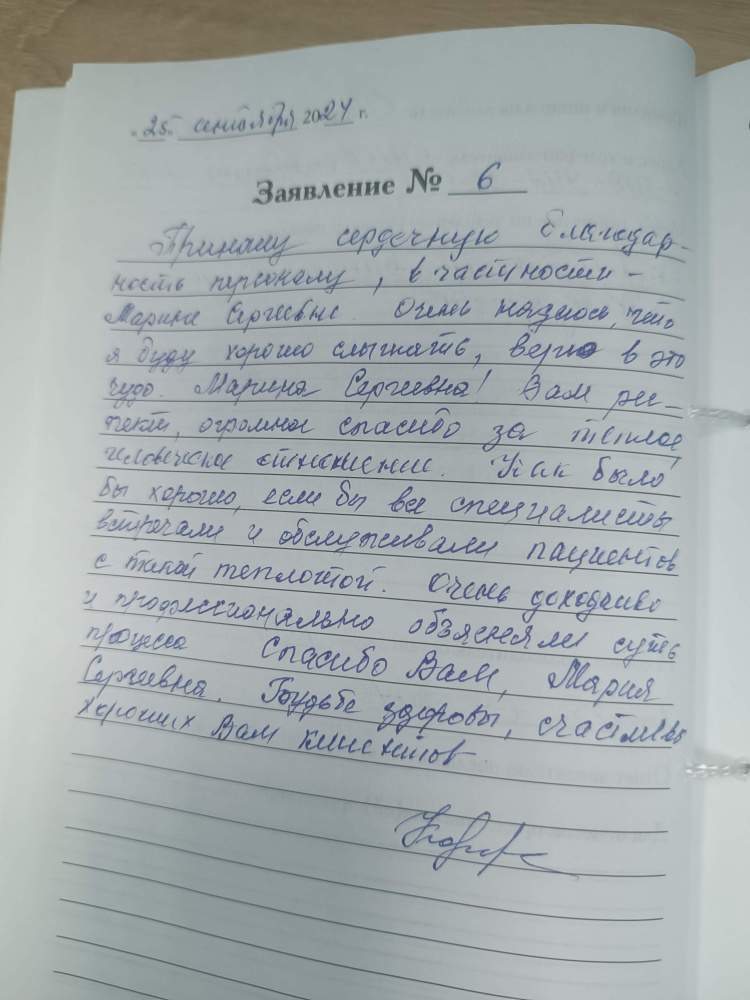 "25" сентября 2024 г.
Заявление № 6
Приношу сердечную благодар-
ность персоналу, в частности -
Марине Сергеевне. Очень надеюсь, что
я буду хорошо слышать, верю в это
чудо. Марина Сергеевна! Вам рес-
пект, огромное спасибо за теплое,
человеческое отношение. Как было
бы хорошо, если бы все специалисты
встречали и обслуживали пациентов
с такой теплотой. Очень доходчиво
и профессионально обзясняли суть
процесса Спасибо Вам, Мария
Сергеевна. Будьте здоровы, счастливы
хороших Вам клиентов